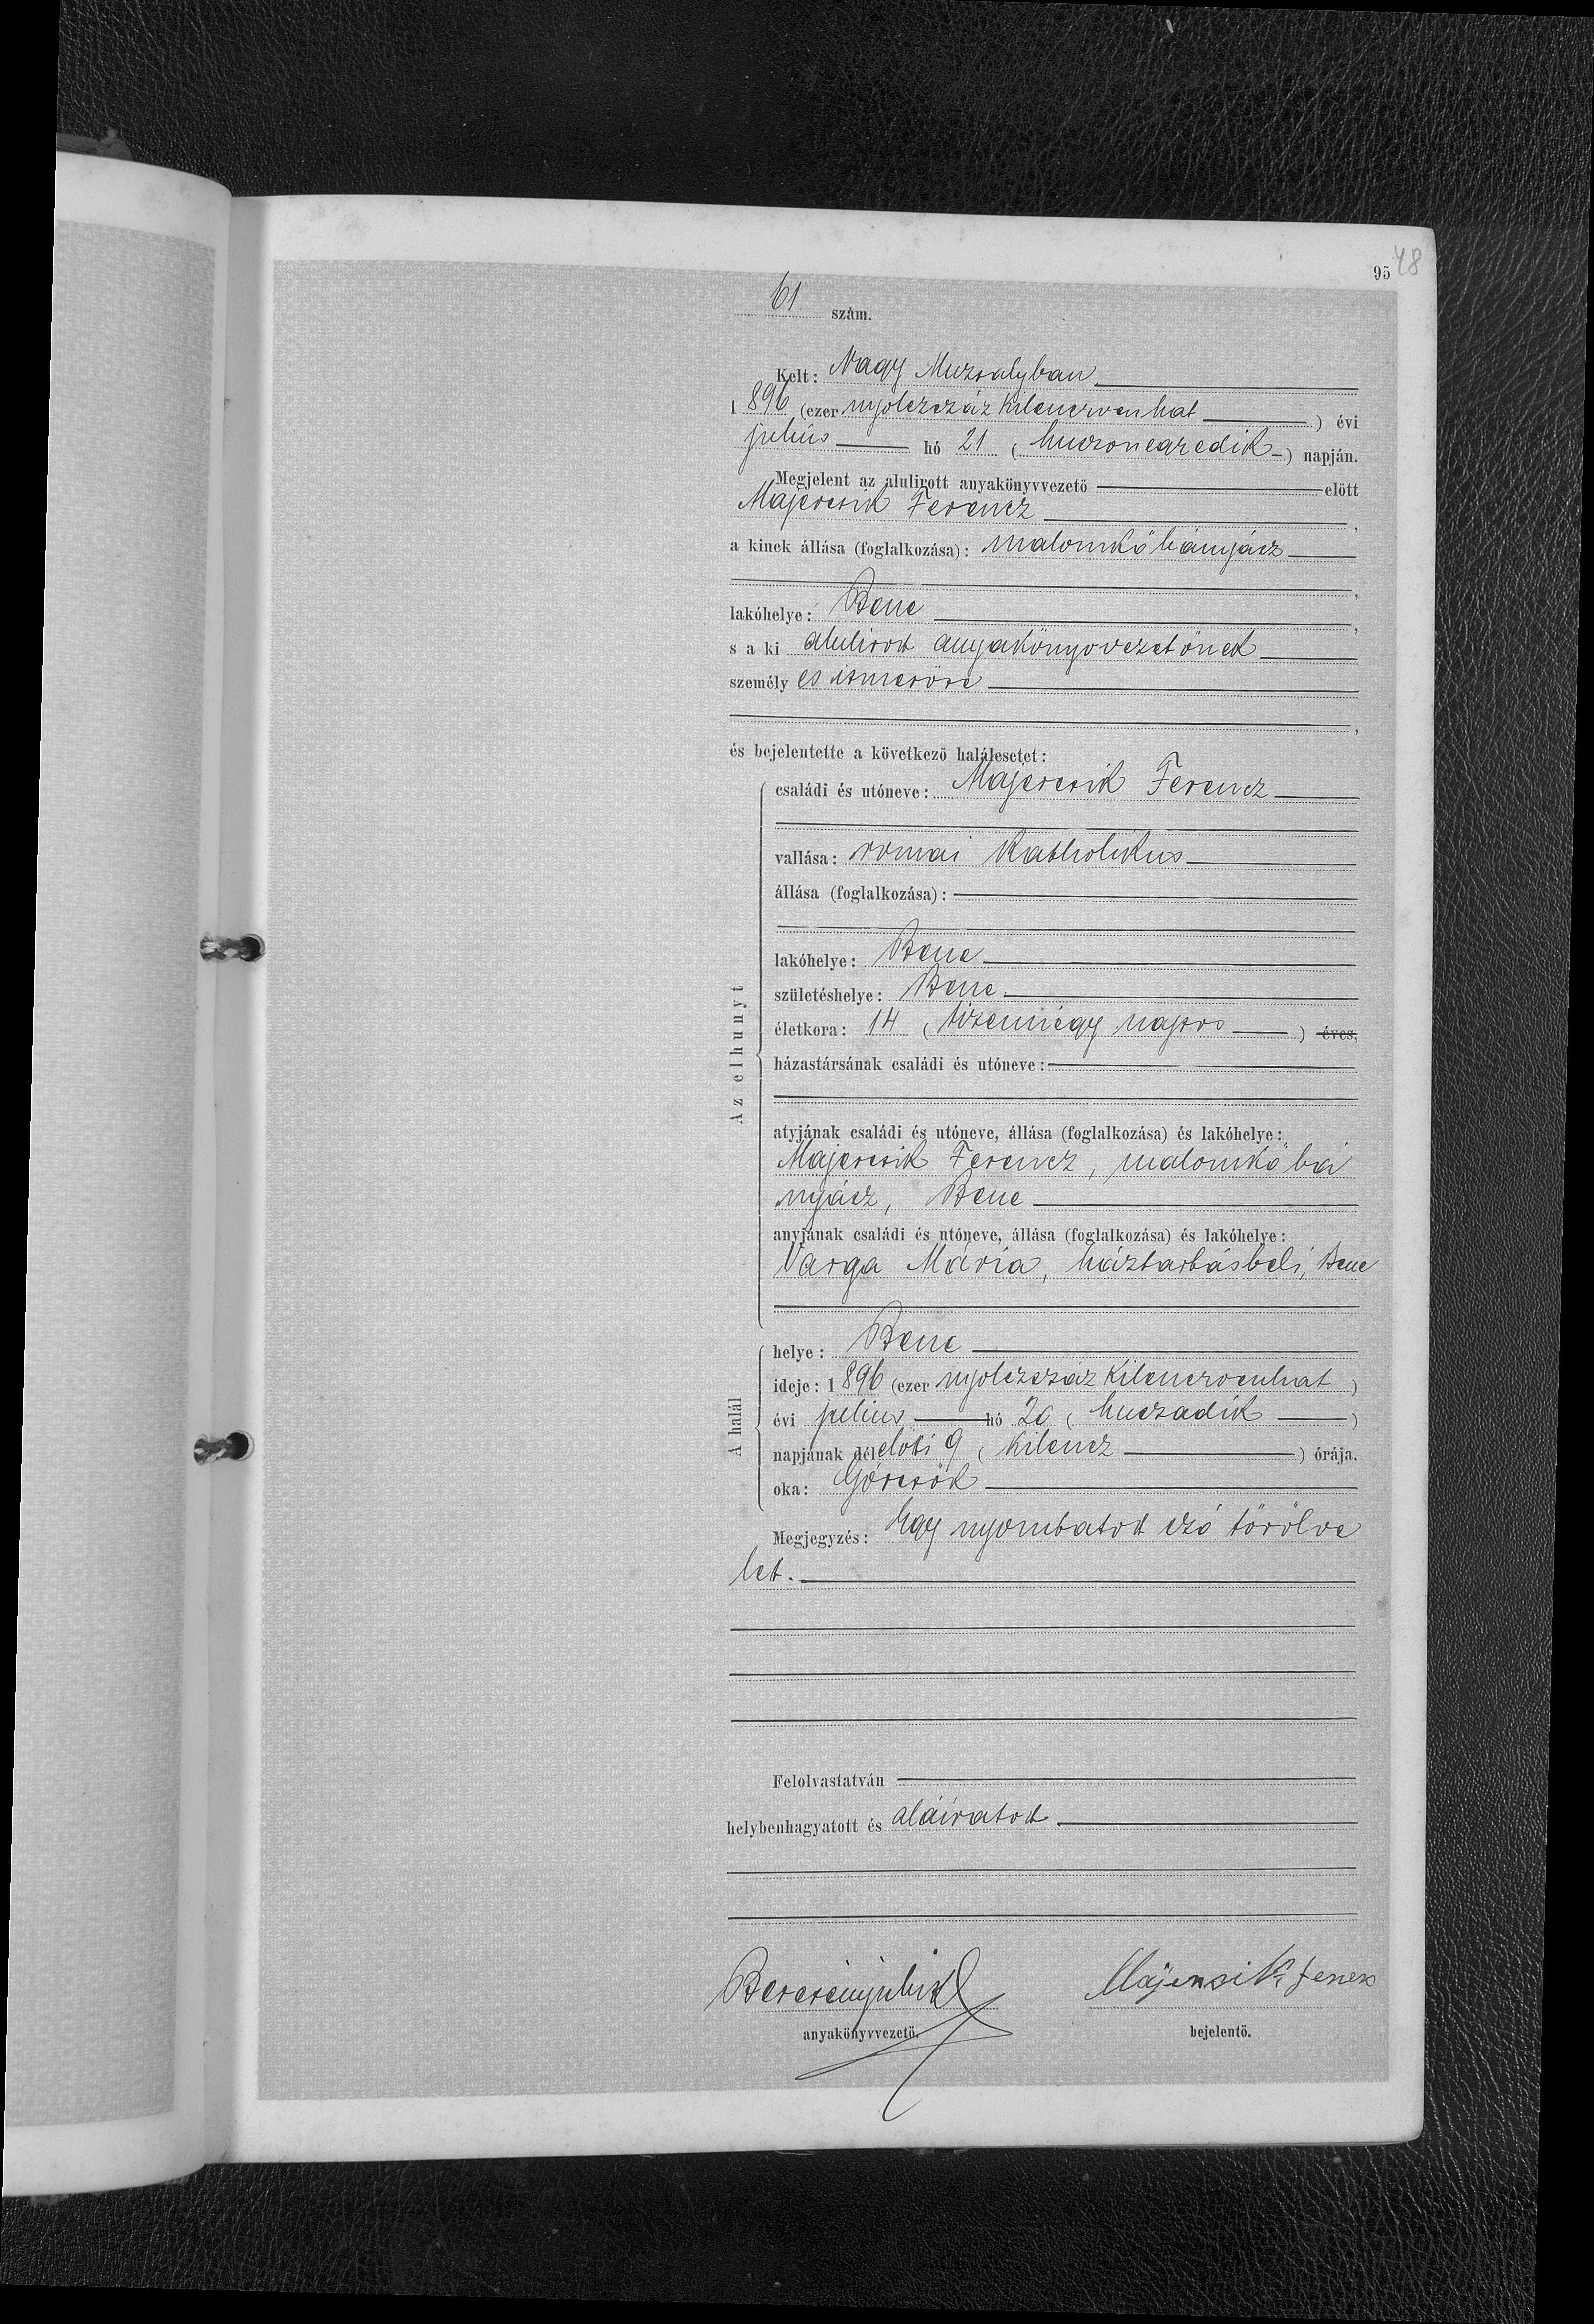 95 48
61. szám.
Kelt: Nagy Muzsalyban
1896 (ezer nyolczszáz kilenczvenhat) évi
julius hó 21 (huszonegyedik) napján.
Megjelent az alulirott anyakönyvvezető előtt
Majercsik Ferencz,
a kinek állása (foglalkozása): malomkő bányász
,
lakóhelye: Bene,
s a ki alulirott anyakönyvvezetőnek
személyes ismerőse
,
és bejelentette a következő halálesetet:
Az elhunyt
családi és utóneve: Majercsik Ferencz
vallása: romai katholikus
állása (foglalkozása):
lakóhelye: Bene
születéshelye: Bene
életkora: 14 (tizennégy napos) éves,
házastársának családi és utóneve:
atyjának családi és utóneve, állása (foglalkozása) és lakóhelye:
Majercsik Ferencz, malomkő bá
nyász, Bene
anyjának családi és utóneve, állása (foglalkozása) és lakóhelye:
Varga Mária, háztartásbeli, Bene
A halál
helye: Bene
ideje: 1896 (ezer nyolczszáz kilenczvenhat)
évi julius hó 20 (huszadik)
napjának délelőtti 9 (kilencz) órája.
oka: Görcsök
Megjegyzés: Egy nyomtatott szó törölve
lett.
Felolvastatván
helybenhagyatott és aláiratott
anyakönyvvezető. bejelentő.